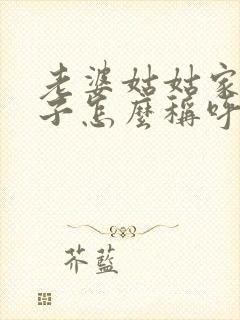 老婆姑姑家
子怎麼稱呼
芥藍